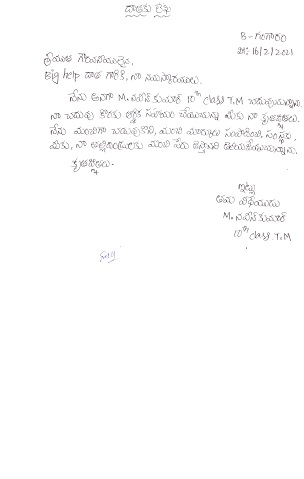 దాతకు లేఖ
B-గంగారం
తే: 16/2/2021
శ్రీయుత గౌరవనీయులైన,
Big help దాత గారికి, నా నమస్కారములు.
నేను అనగా M. నవీన్ కుమార్ 10th class T.M చదువుచున్నాను.
నా చదువు కొరకు ఆర్థిక సహాయం చేయుచున్న మీకు నా కృతజ్ఞతలు.
నేను మంచిగా చదువుకొని, మంచి మార్కులు సంపాదించి, సంస్థకు,
మీకు, నా తల్లిదండ్రులకు మంచి పేరు తెస్తానని తెలియజేయుచున్నాను.
కృతజ్ఞతలు.
ఇట్లు
తమ విధేయుడు
M. నవీన్ కుమార్
10th class T.M